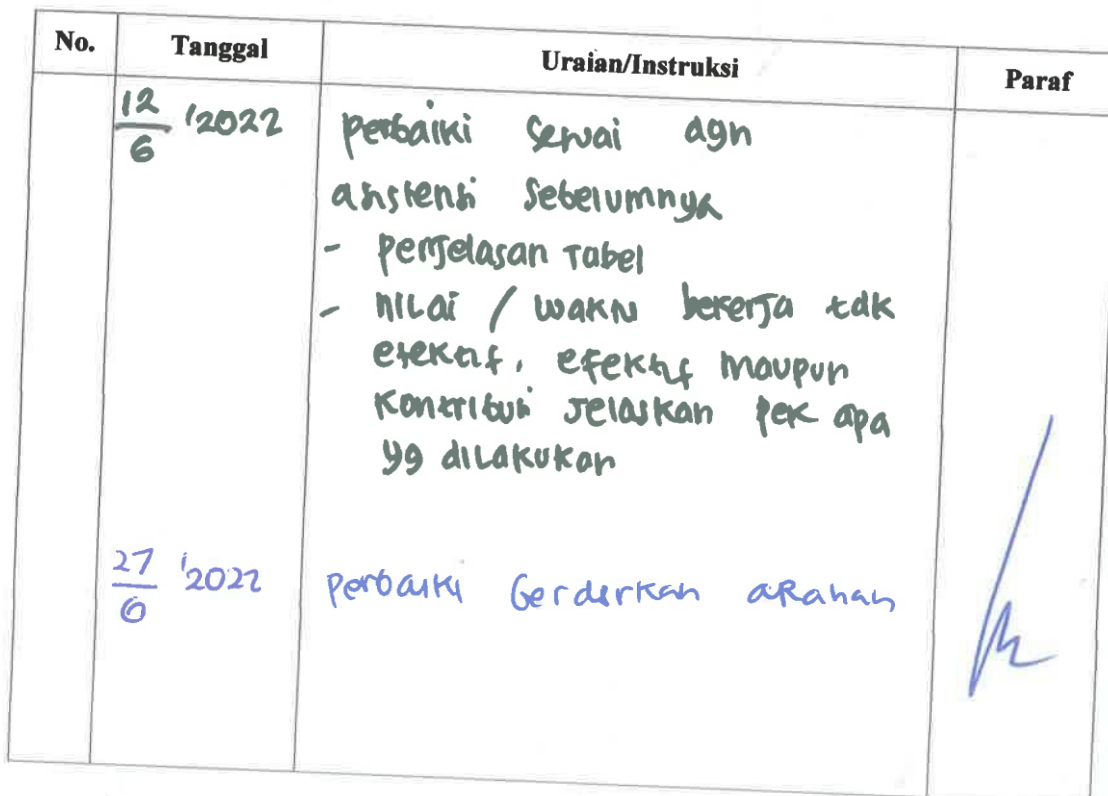 No. Tanggal Uraian/Instruksi Paraf
12/6 '2022 perbaiki sesuai dgn
asistensi sebelumnya
- penjelasan Tabel
- nilai / waktu bekerja tdk
efektif, efektif maupun
kontribusi jelaskan pek apa
yg dilakukan
27/6 '2022 perbaiki berdasrkan arahan